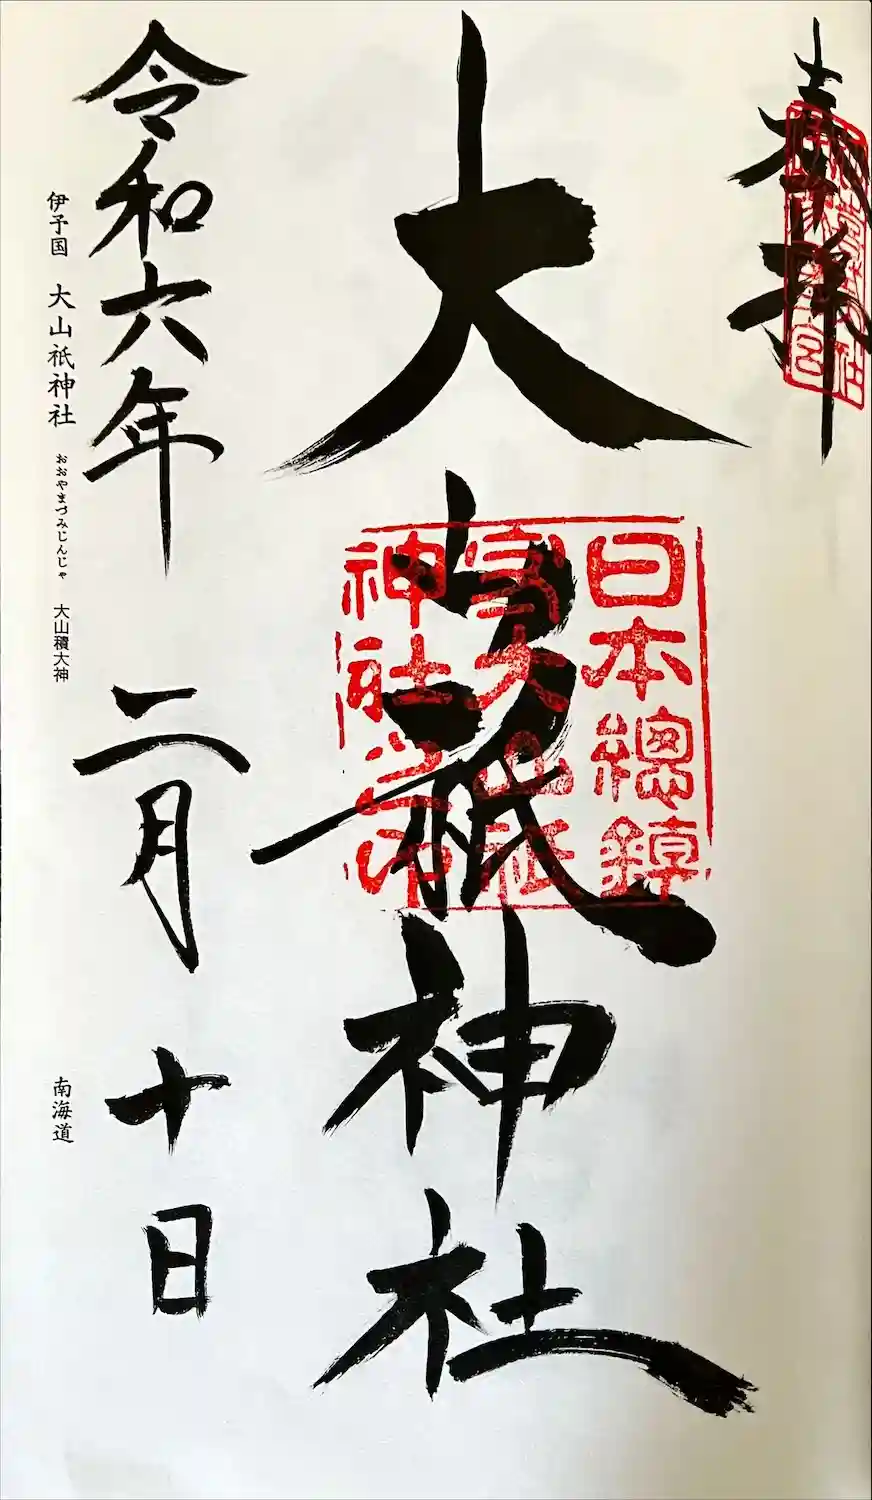 奉拝
大山祇神社
日本總鎮
守大山祇
神社之印
令和六年 二月 十日
伊予国 大山祇神社 おおやまづみじんじゃ 大山積大神 南海道